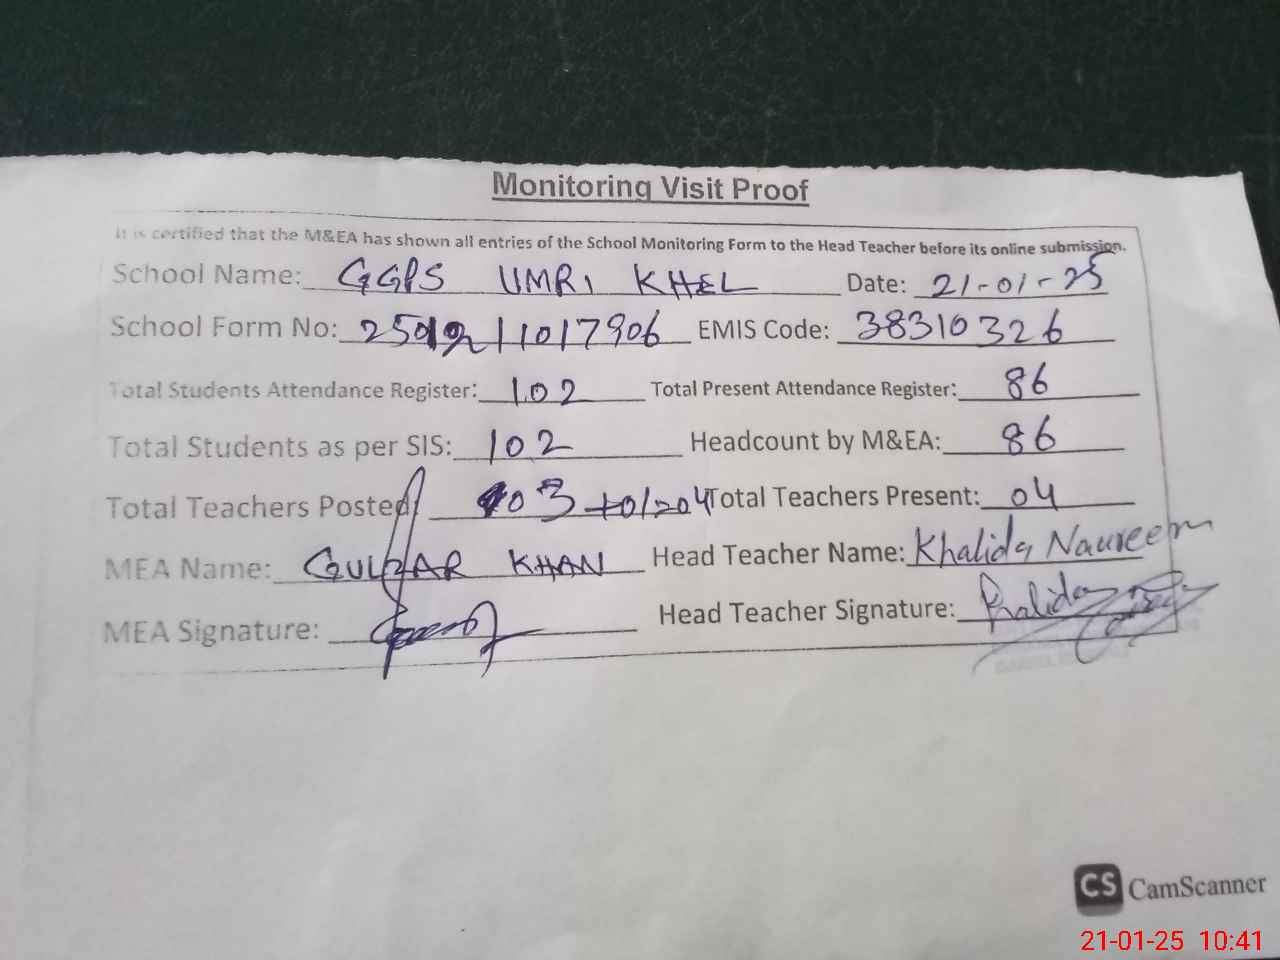 Monitoring Visit Proof
It is certified that the M&EA has shown all entries of the School Monitoring Form to the Head Teacher before its online submission.
School Name: GGPS UMRI KHEL Date: 21-01-25
School Form No: 11017906 EMIS Code: 38310326
Total Students Attendance Register: 102 Total Present Attendance Register: 86
Total Students as per SIS: 102 Headcount by M&EA: 86
Total Teachers Posted 03+01=04 Total Teachers Present: 04
MEA Name: GULZAR KHAN Head Teacher Name: Khalida Naureen
MEA Signature: Head Teacher Signature: Khalida
CS CamScanner
21-01-25 10:41